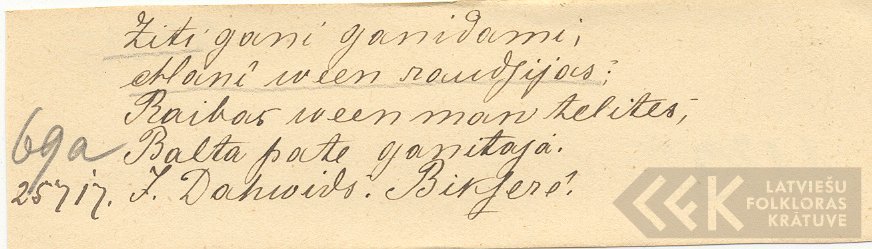 Žiti gani ganidami,
Manî ween raudsijas:
Raibas ween man telites,
69a Balta pate ganitaja.
25717. J. Dahwids. Bikserê.
LATVIEŠU
FOLKLORAS
KRĀTUVE